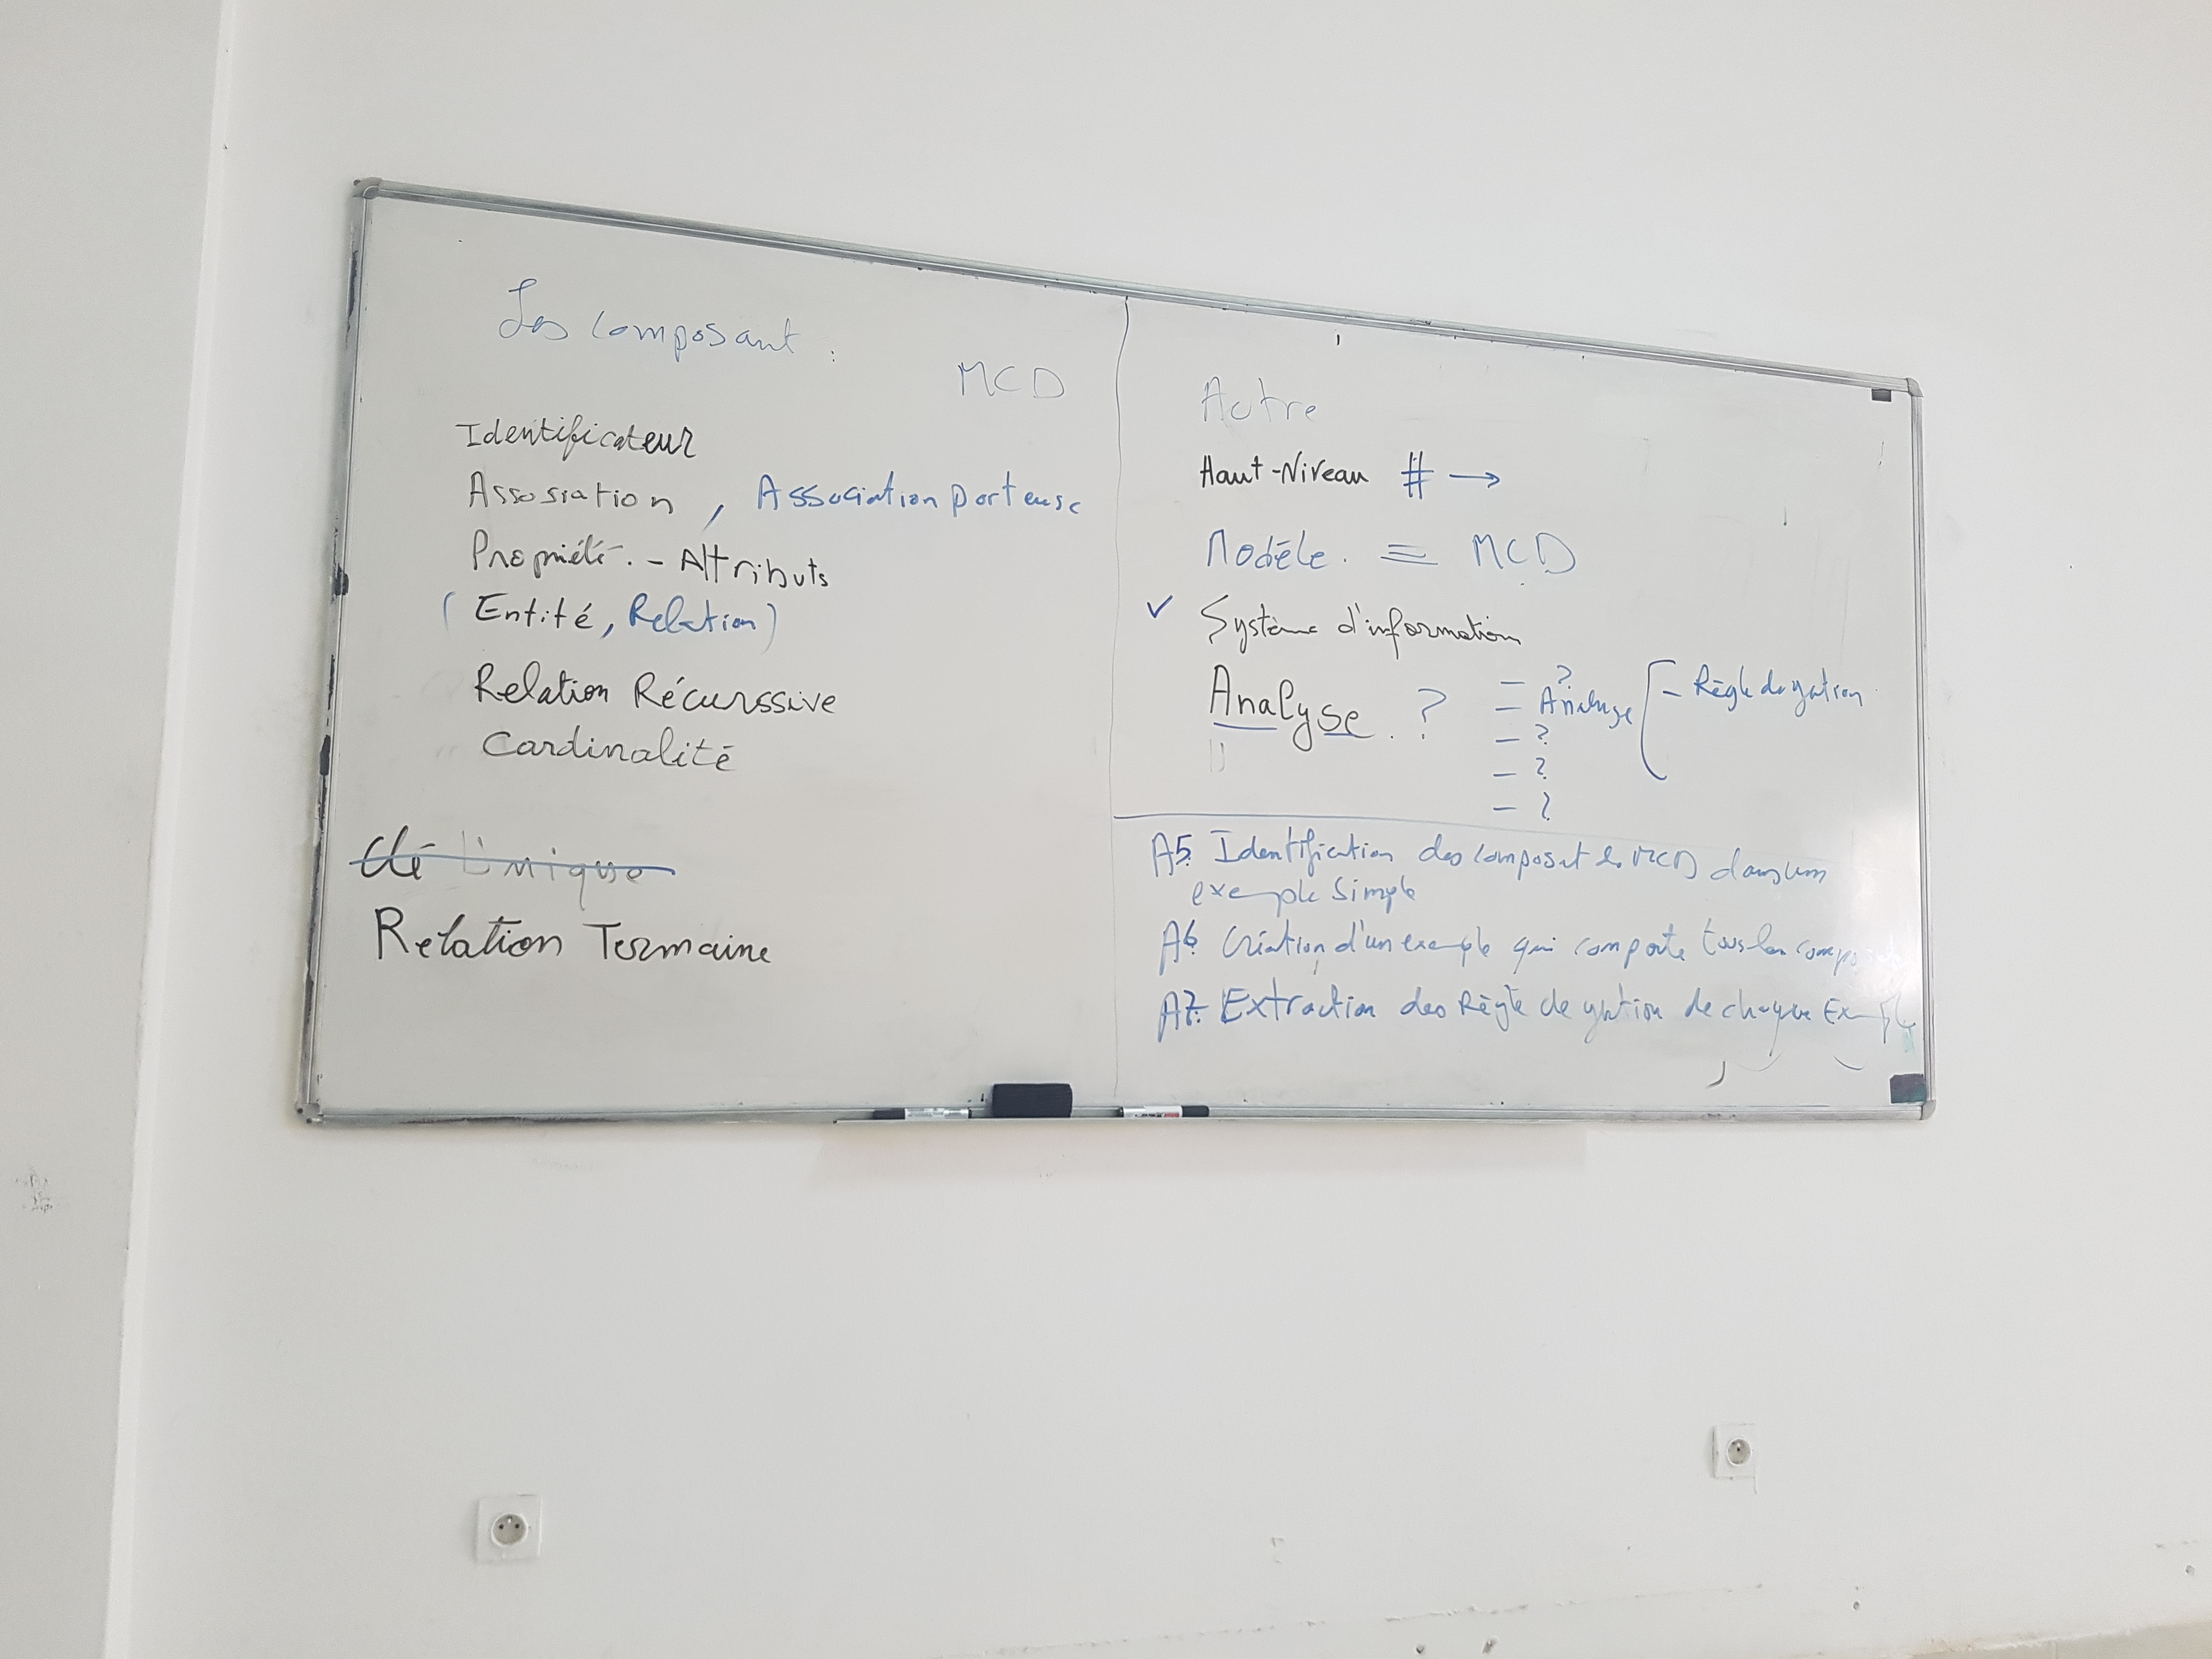 Les composant :
MCD
Identificateur
Assosiation , Association porteuse
Propriété. - Attributs
(Entité, Relation)
Relation Récurssive
Cardinalité
Clé Unique
Relation Termaine
Autre
Haut-Niveau # →
Modèle. = MCD
✓ Système d'information
Analyse. ?
- ?
- Analyse [ - Règle de gestion
- ?
- ?
- ?
A5. Identification des composant de MCD dans un
exemple simple
A6. Création d'un exemple qui comporte tous les
A7. Extraction des Règle de gestion de chaque Exemple